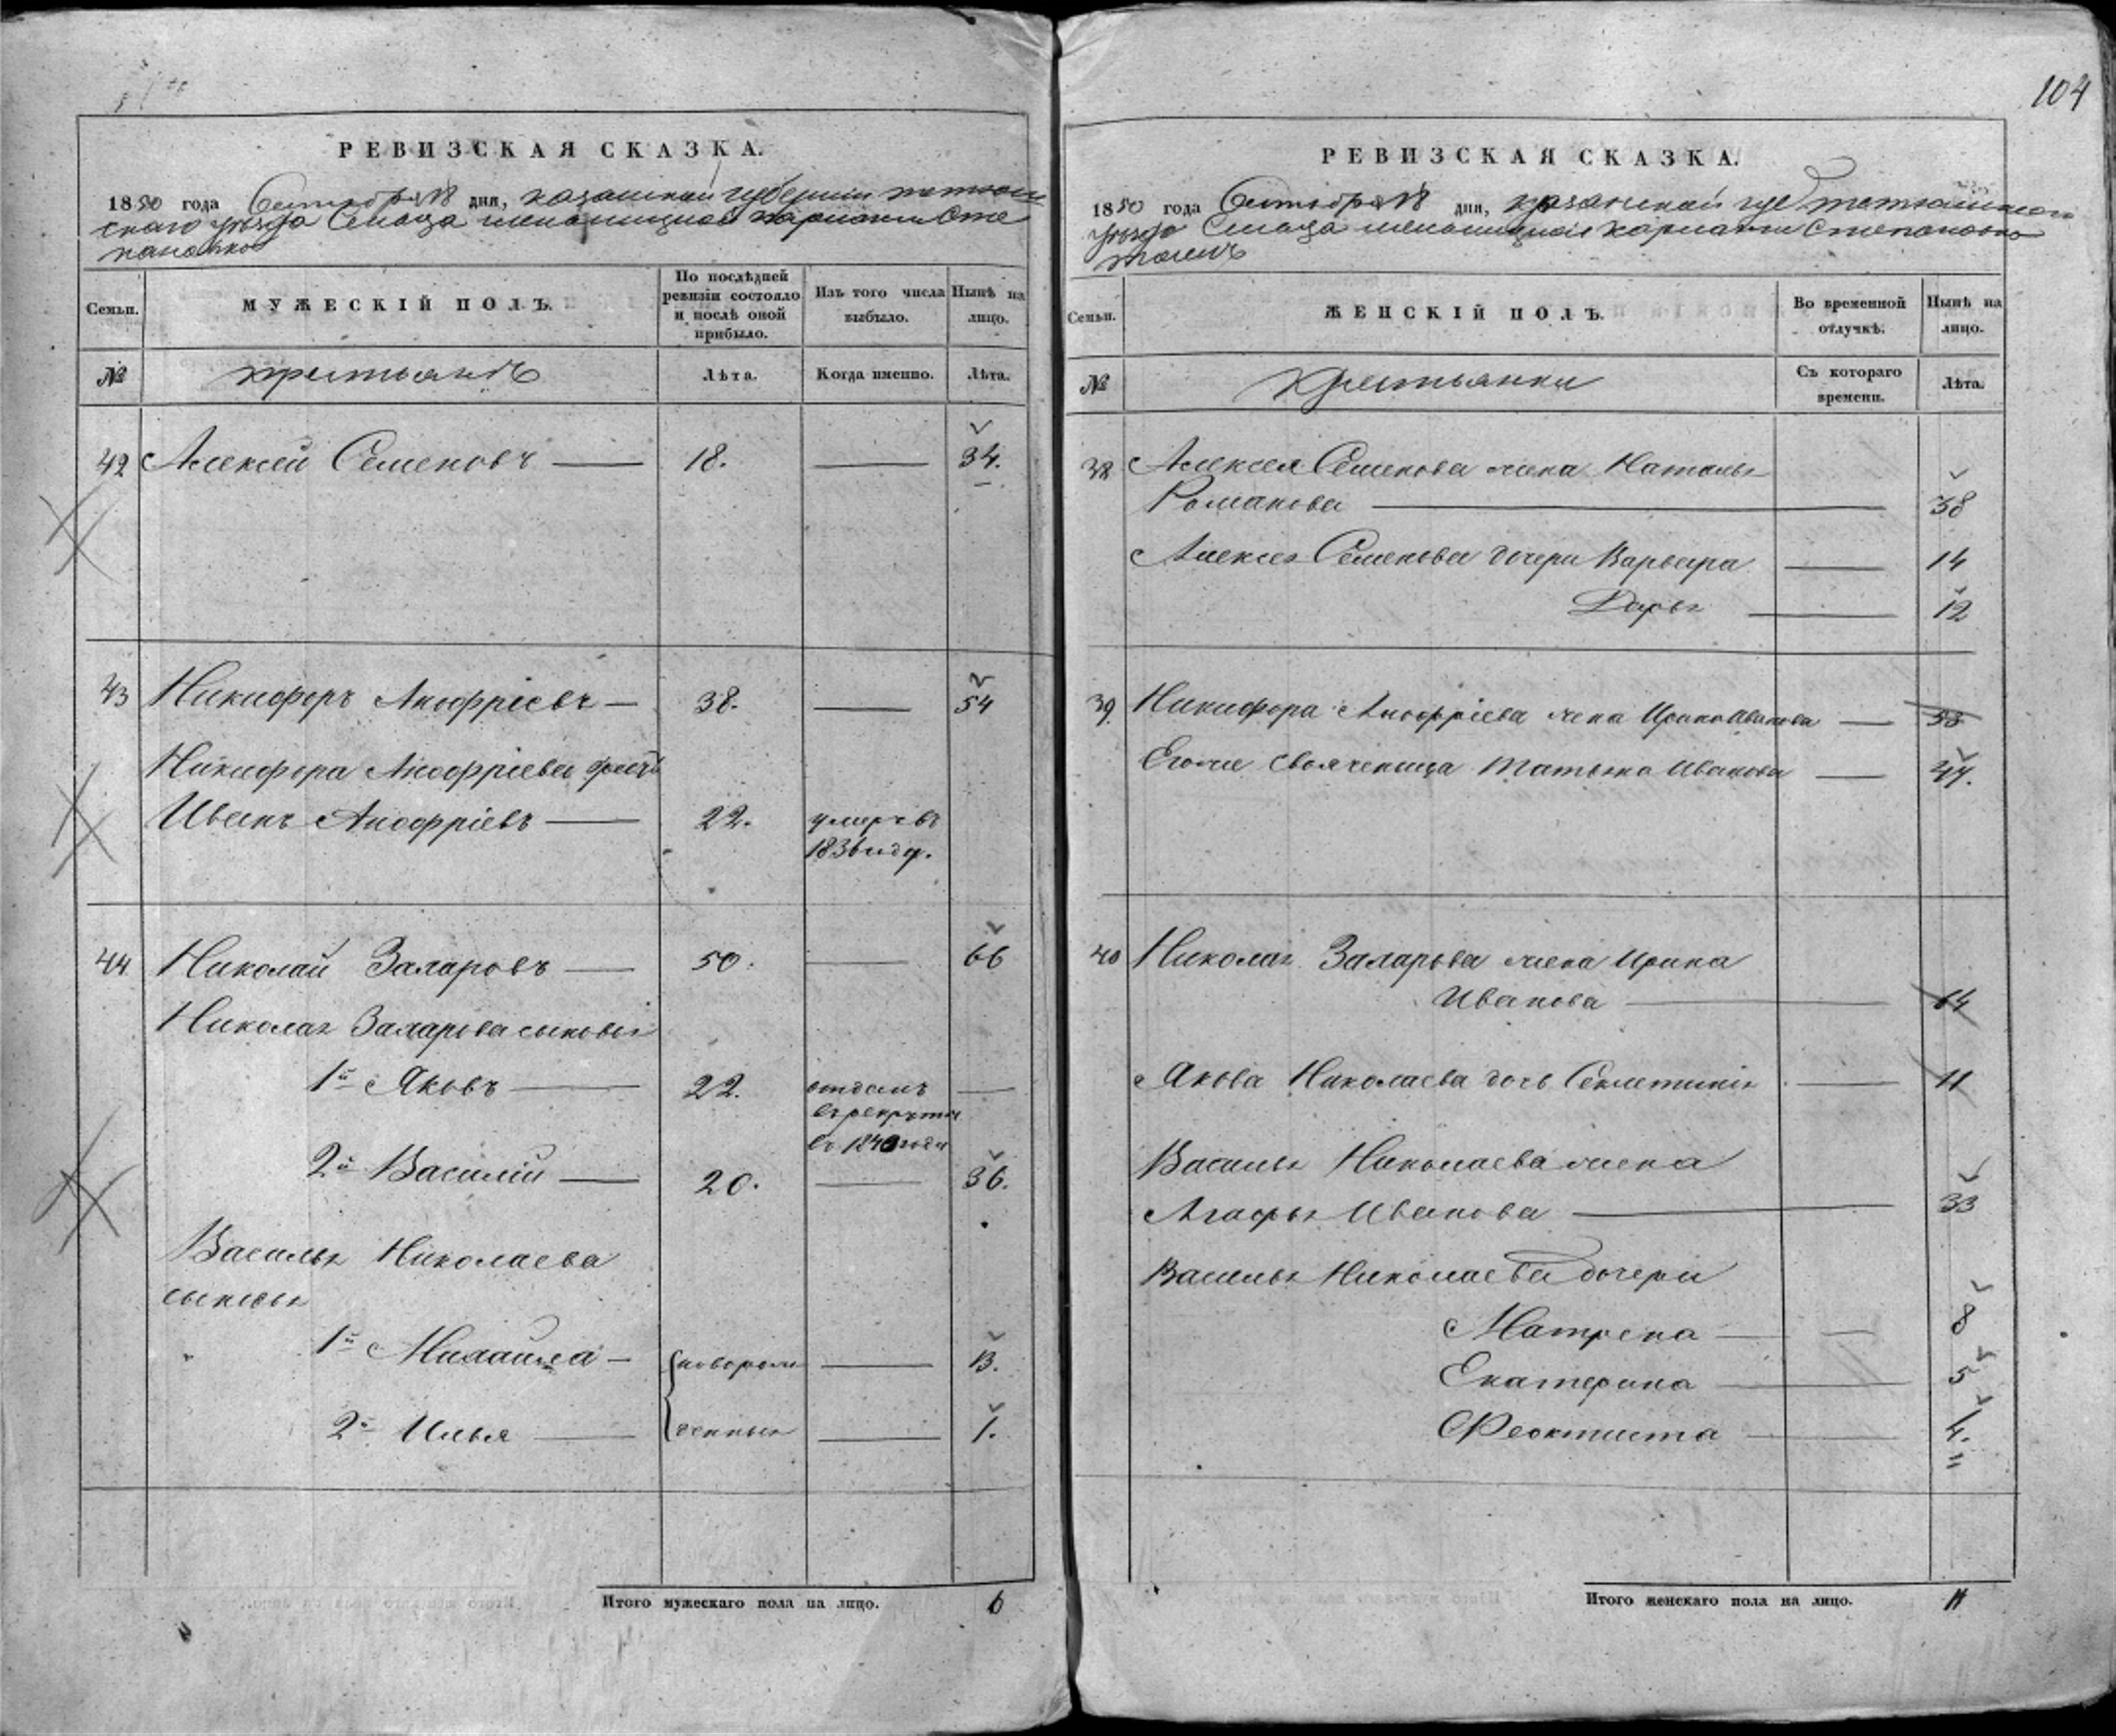 104
РЕВИЗСКАЯ СКАЗКА.
1850 года Сентября 18 дня, казанской губернiи тетюш
скаго уѣзда Сельца
Семьи.
МУЖЕСКІЙ ПОЛЪ.
По послѣдней ревизіи состояло и послѣ оной прибыло.
Изъ того числа выбыло.
Нынѣ на лицо.
№
крестьянъ
Лѣта.
Когда именно.
Лѣта.
42 Алексей Семеновъ — 18. — 34.
43 Никифоръ Анофріевъ — 38. — 54
Никифора Анофріева братъ
Иванъ Анофріевъ — 22. умеръ въ
1836 году.
44 Николай Захаровъ — 50. — 66
Николая Захарова сыновья
1й Яковъ — 22. отданъ —
въ рекруты
въ 1840 году
2й Василій — 20. — 36.
Василья Николаева
сыновья
1й Михаила — новорож — 13.
2й Илья — денныя — 1.
Итого мужескаго пола на лицо. 6
РЕВИЗСКАЯ СКАЗКА.
1850 года Сентября 18 дня, казанской губ тетюшскаго
уѣзда Сельца
Семьи.
ЖЕНСКІЙ ПОЛЪ.
Во временной отлучкѣ.
Нынѣ на лицо.
№
крестьянки
Съ котораго времени.
Лѣта.
38 Алексея Семенова жена Наталья
Романова — 38
Алексея Семенова дочери Варвара — 14
Дарья — 12
39. Никифора Анофріева жена Ирина Иванова — 58
Егоже свояченица Татьяна Иванова — 47.
40 Николая Захарова жена Ирина
Иванова — 64
Якова Николаева дочь Секлетинія — 11
Василья Николаева жена
Агафья Иванова — 33
Василья Николаева дочери
Матрена — 8
Екатерина — 5
Феоктиста — 4.
Итого женскаго пола на лицо. 11